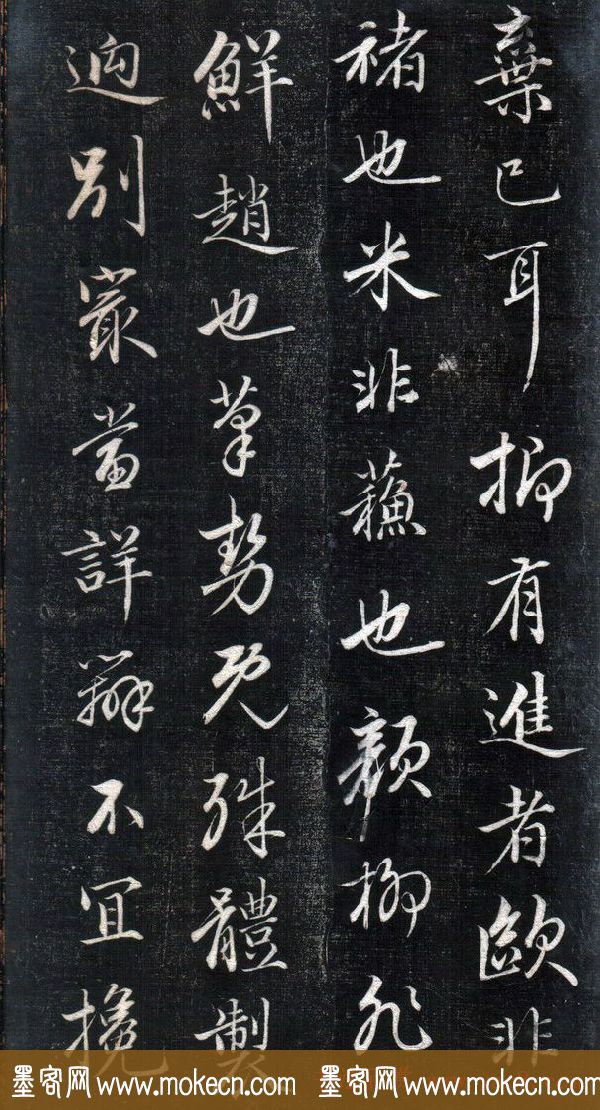 棄已耳抑有進者歐非
褚也米非蘓也顔柳非
鮮趙也筆勢既殊體製
迥別寂當詳辯不宜攙
墨客网 www.mokecn.com 墨客网 www.mokecn.com